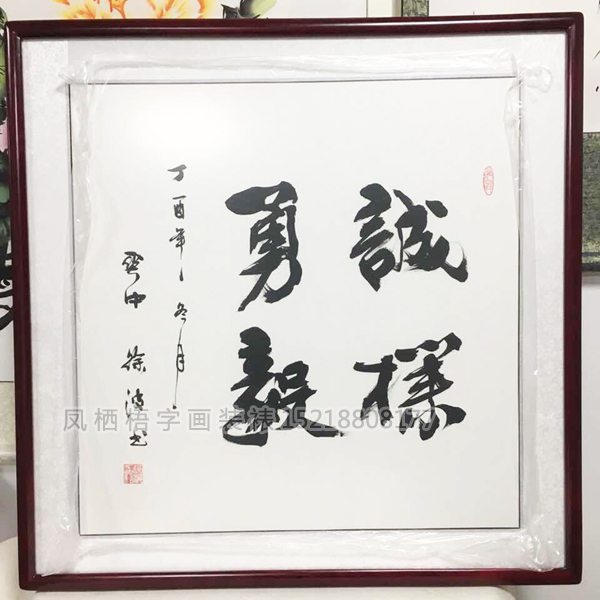 誠樸
勇毅
丁酉年冬月
中徐
凤栖梧字画装裱15218808177